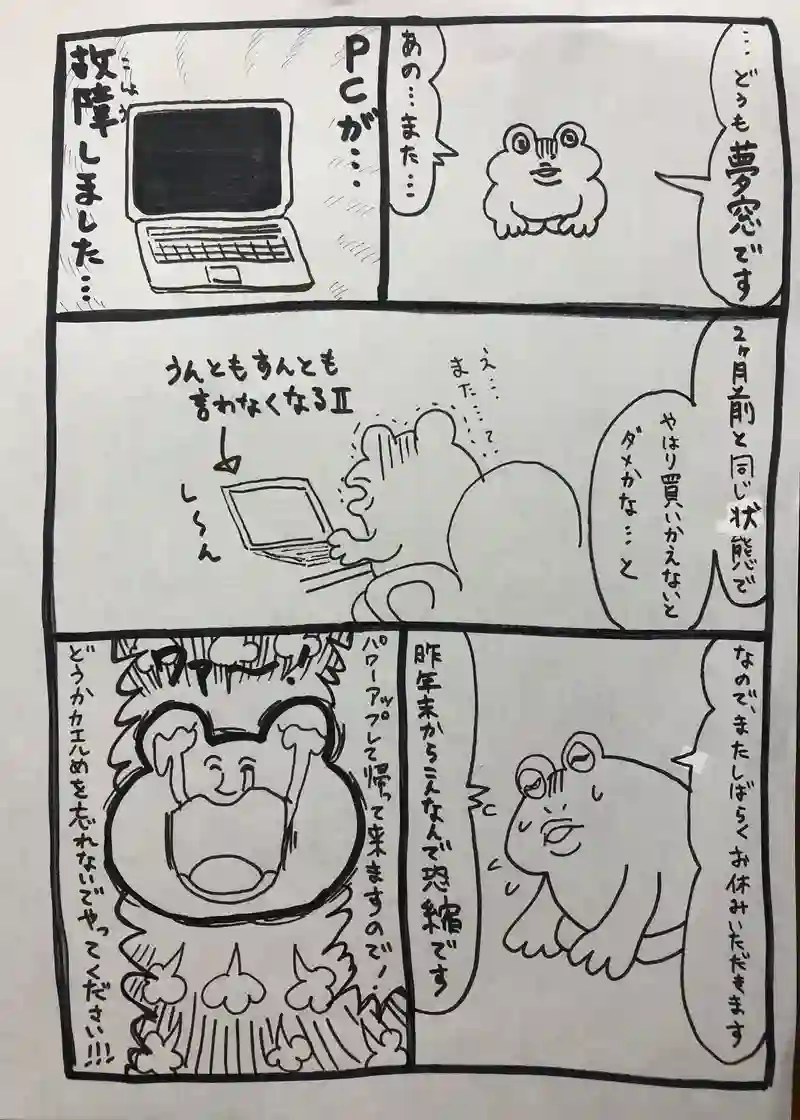 …どうも夢窓です
あの…また…
PCが…
故障しました…
こしょう
2ヶ月前と同じ状態で
やはり買いかえないと
ダメかな…と
え…
また…って…
うんともすんとも
言わなくなるⅡ
し〜ん
なので、またしばらくお休みいただきます
昨年末からこんなんで恐縮です
パワーアップして帰って来ますので!
ワァァー!
どうかカエルめを忘れないでやってください!!!